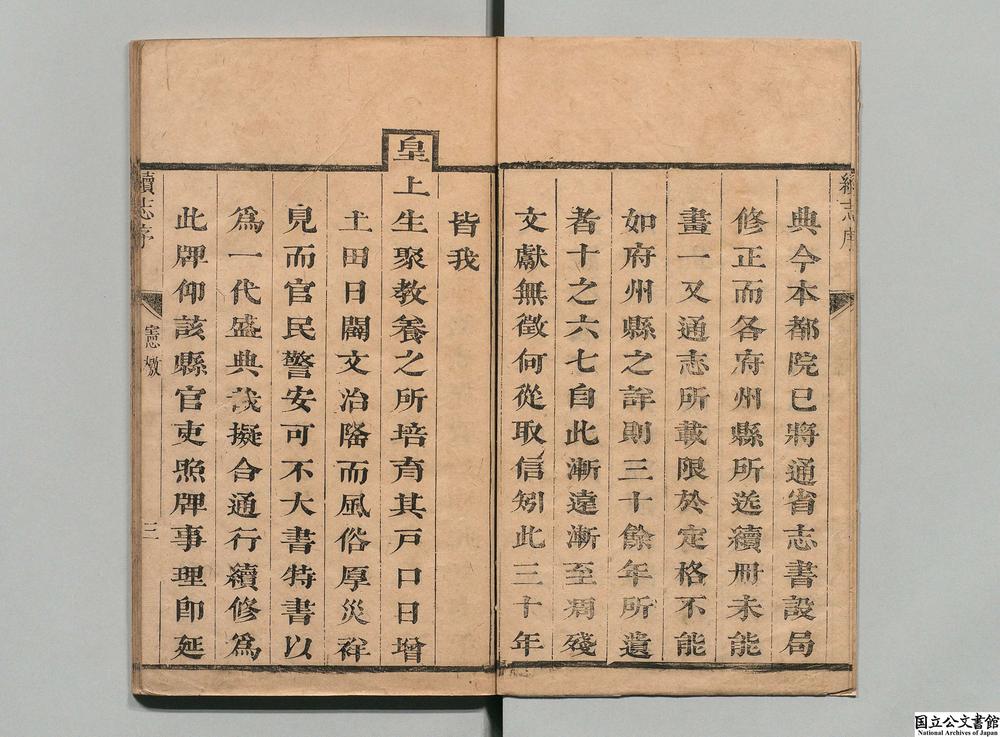 續志序
典今本都院已將通省志書設局
修正而各府州縣所送續冊未能
畫一又通志所載限於定格不能
如府州縣之詳則三十餘年所遺
者十之六七自此漸遠漸至凋殘
文獻無徵何從取信矧此三十年
皆我
皇上生聚教養之所培育其戶口日增
土田日闢文治隆而風俗厚災祥
見而官民警安可不大書特書以
爲一代盛典茲擬合通行續修爲
此牌仰該縣官吏照牌事理即延
續志序
憲檄
三
国立公文書館
National Archives of Japan